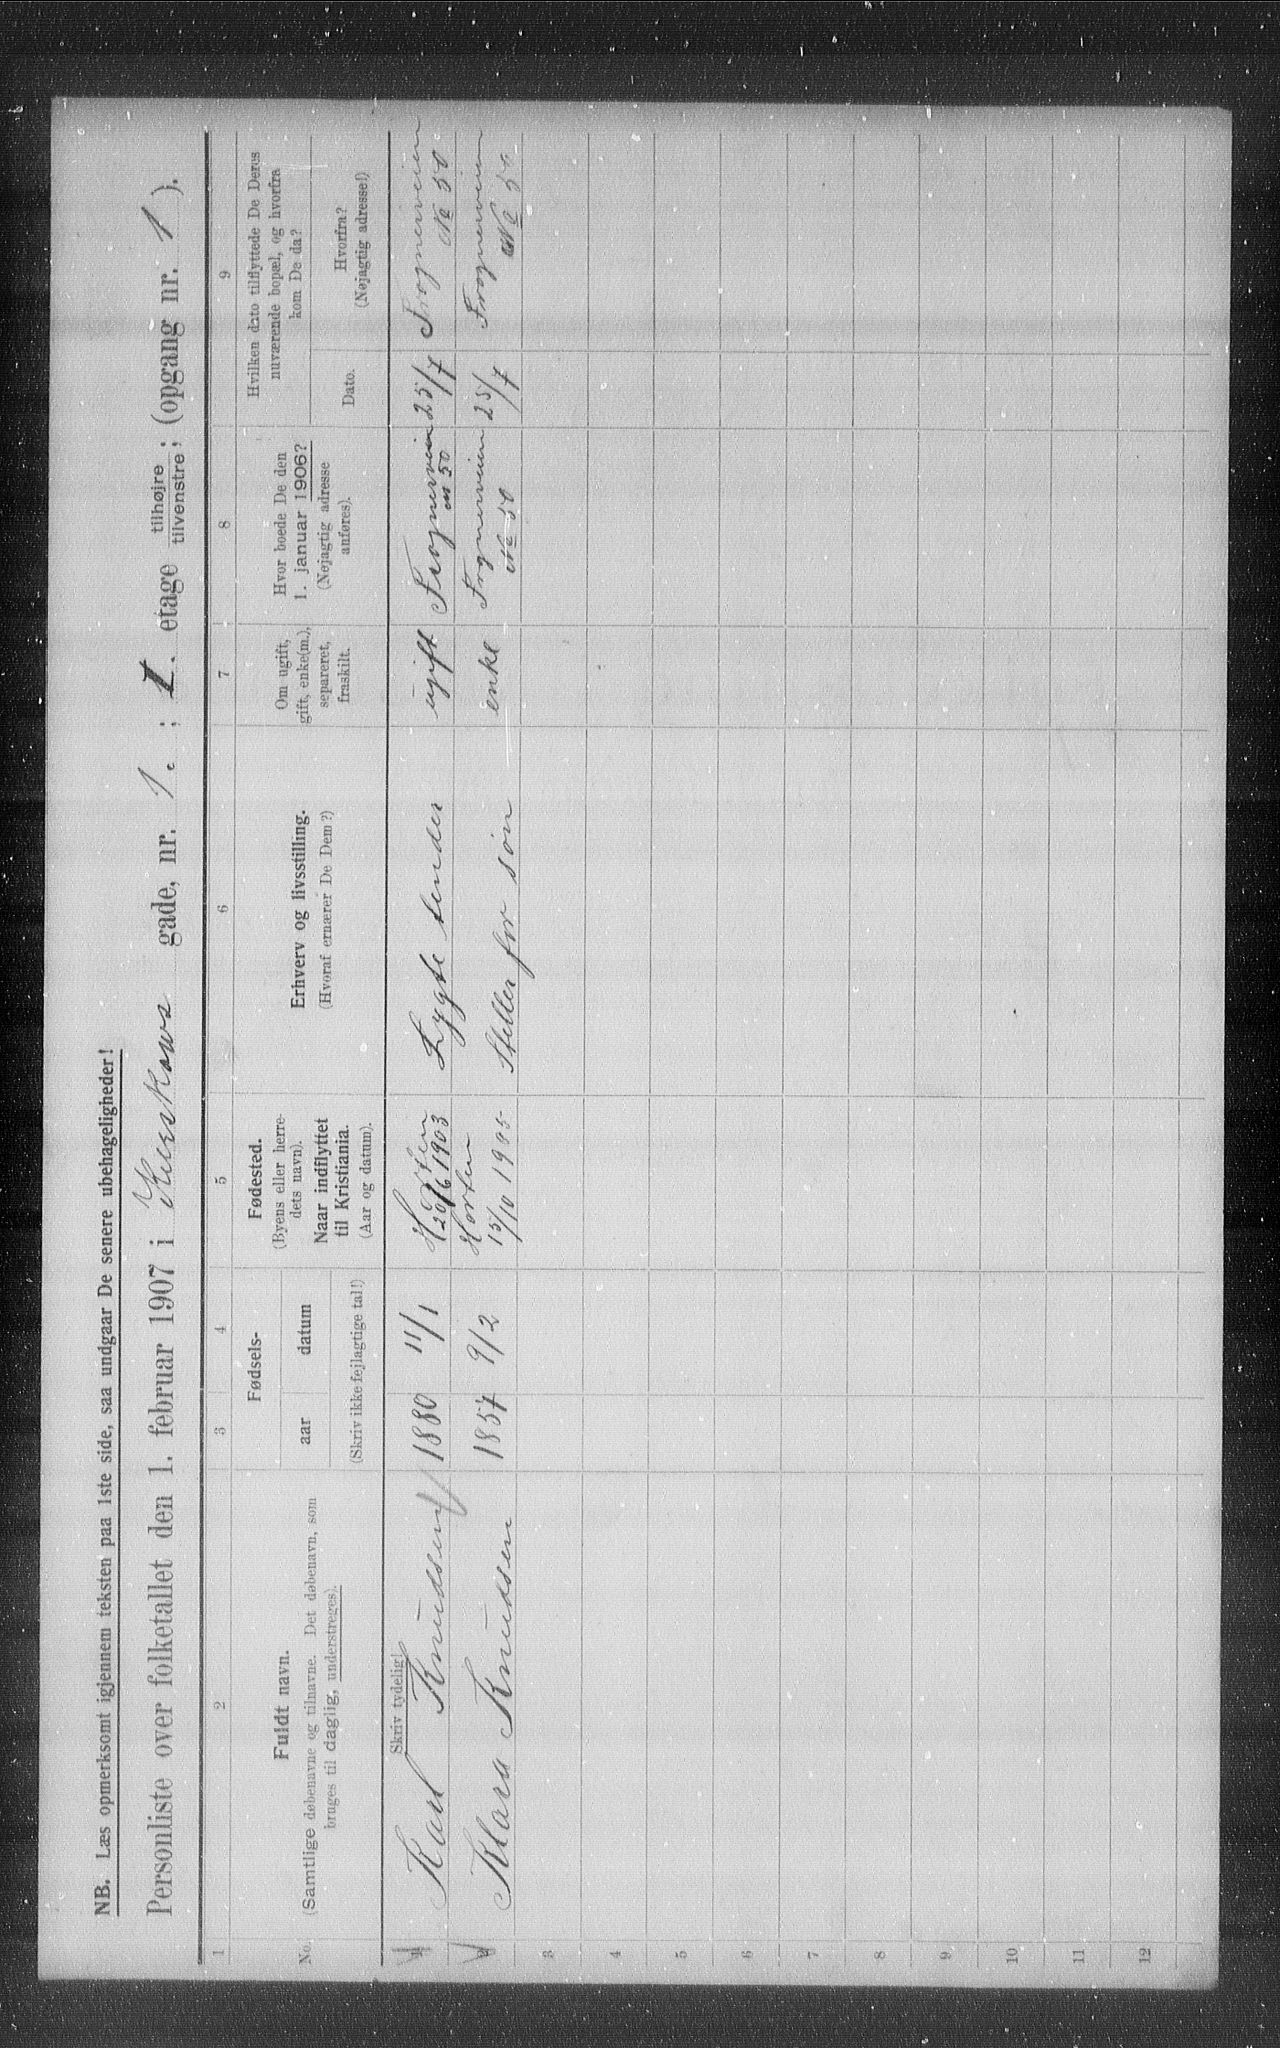 NB. Læs opmerksomt igjennem teksten paa 1ste side, saa undgaar De senere ubehageligheder!
Personliste over folketallet den 1. februar 1907 i gade, nr. 1. ; I. etage tilhøjre tilvenstre ; (opgang nr. 1 ).
1 2 3 4 5 6 7 8 9
No. Fuldt navn. (Samtlige døbenavne og tilnavne. Det døbenavn, som bruges til daglig, understreges).
Fødsels-
aar datum
(Skriv ikke fejlagtige tal!)
Fødested. (Byens eller herredets navn). Naar indflyttet til Kristiania. (Aar og datum).
Erhverv og livsstilling. (Hvoraf ernærer De Dem?)
Om ugift, gift, enke(m.), separeret, fraskilt.
Hvor boede De den 1. januar 1906? (Nøjagtig adresse anføres).
Hvilken dato tilflyttede De Deres nuværende bopæl, og hvorfra kom De da?
Dato. Hvorfra? (Nøjagtig adresse!)
Skriv tydelig!
1 Karl Knudsen 1880 11/1 Horten 20/6 1903 Lygte tender ugift Frognerveien no 50 25/7 Frognerveien No 50
2 Klara Knudsen 1857 9/2 Horten 15/10 1905 Steller for søn enke Frognerveien No 50 25/7 Frognerveien No 50
3
4
5
6
7
8
9
10
11
12